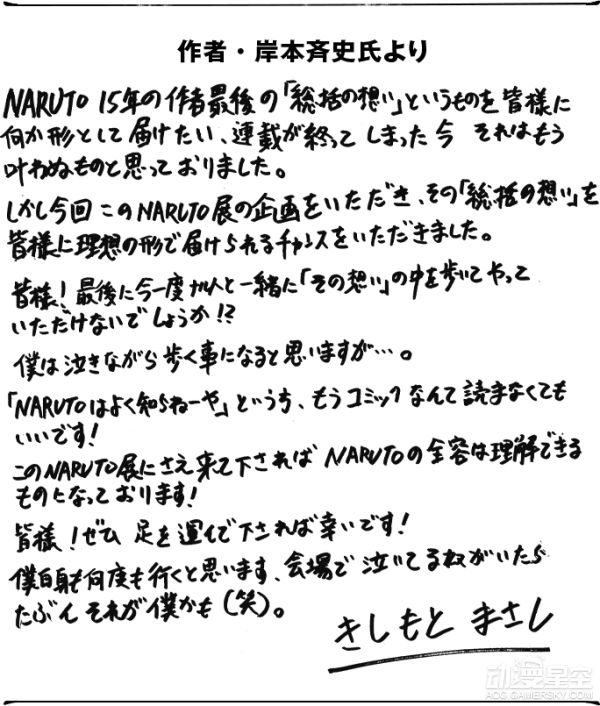 作者・岸本斉史氏より
NARUTO 15年の作者最後の「総括の想い」というものを皆様に
何か形として届けたい、連載が終ってしまった今 それはもう
叶わぬものと思っておりました。
しかし今回このNARUTO展の企画をいただき、その「総括の想い」を
皆様に理想の形で届けられるチャンスをいただきました。
皆様!最後に今一度ナルトと一緒に「その想い」の中を歩いてやって
いただけないでしょうか!?
僕は泣きながら歩く事になると思いますが…。
「NARUTOはよく知らねーや」という方、もうコミックなんて読まなくても
いいです!
このNARUTO展にさえ来て下されば NARUTOの全容は理解できる
ものとなっております!
皆様!ぜひ 足を運んで下されば幸いです!
僕自身も何度も行くと思います、会場で泣いてる奴がいたら
たぶん それが僕かも(笑)。
きしもと まさし
动漫星空
ACG.GAMERSKY.COM